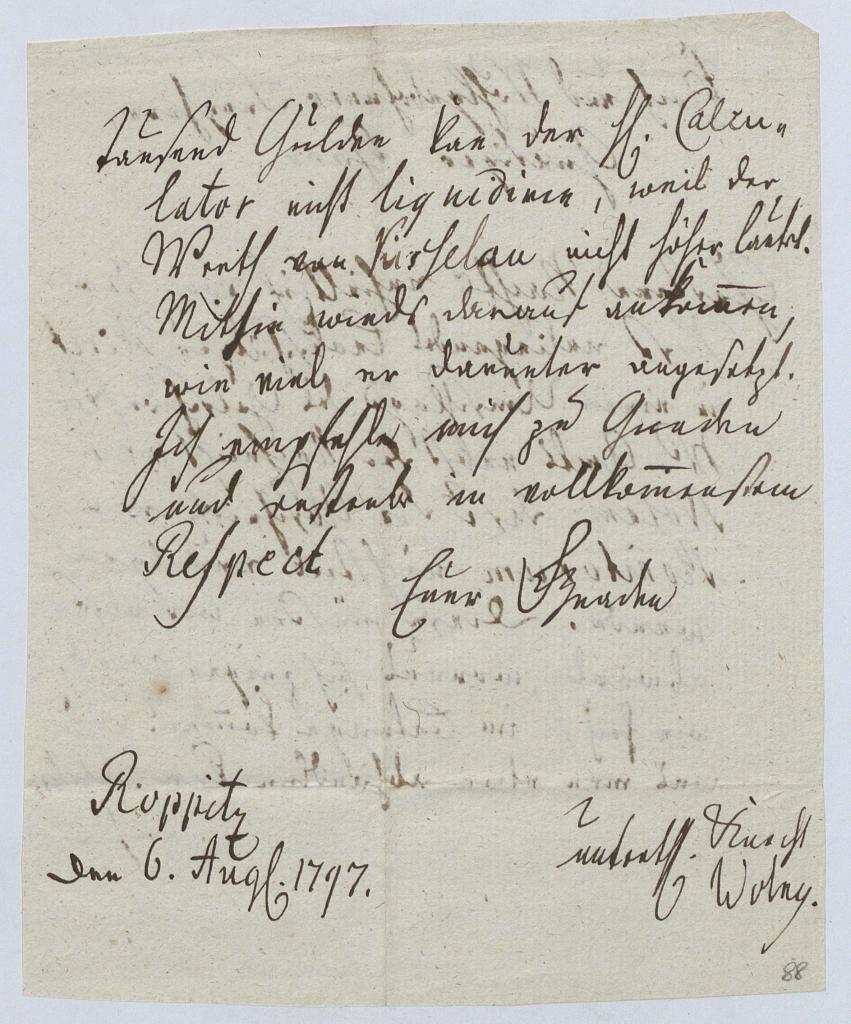 tausend Gulden kan der H. Calcu-
lator nicht liquidiren, weil der
Werth von Kirschelau nicht höher lautet.
Mithin wirds darauf ankom̄en,
wie viel er darunter angesetzt.
Ich empfehle mich zu Gnaden
und ersterbe in vollkom̄enstem
Respect
Euer Gnaden
Roppitz
den 6. Aug. 1797.
unterth. Knecht
88